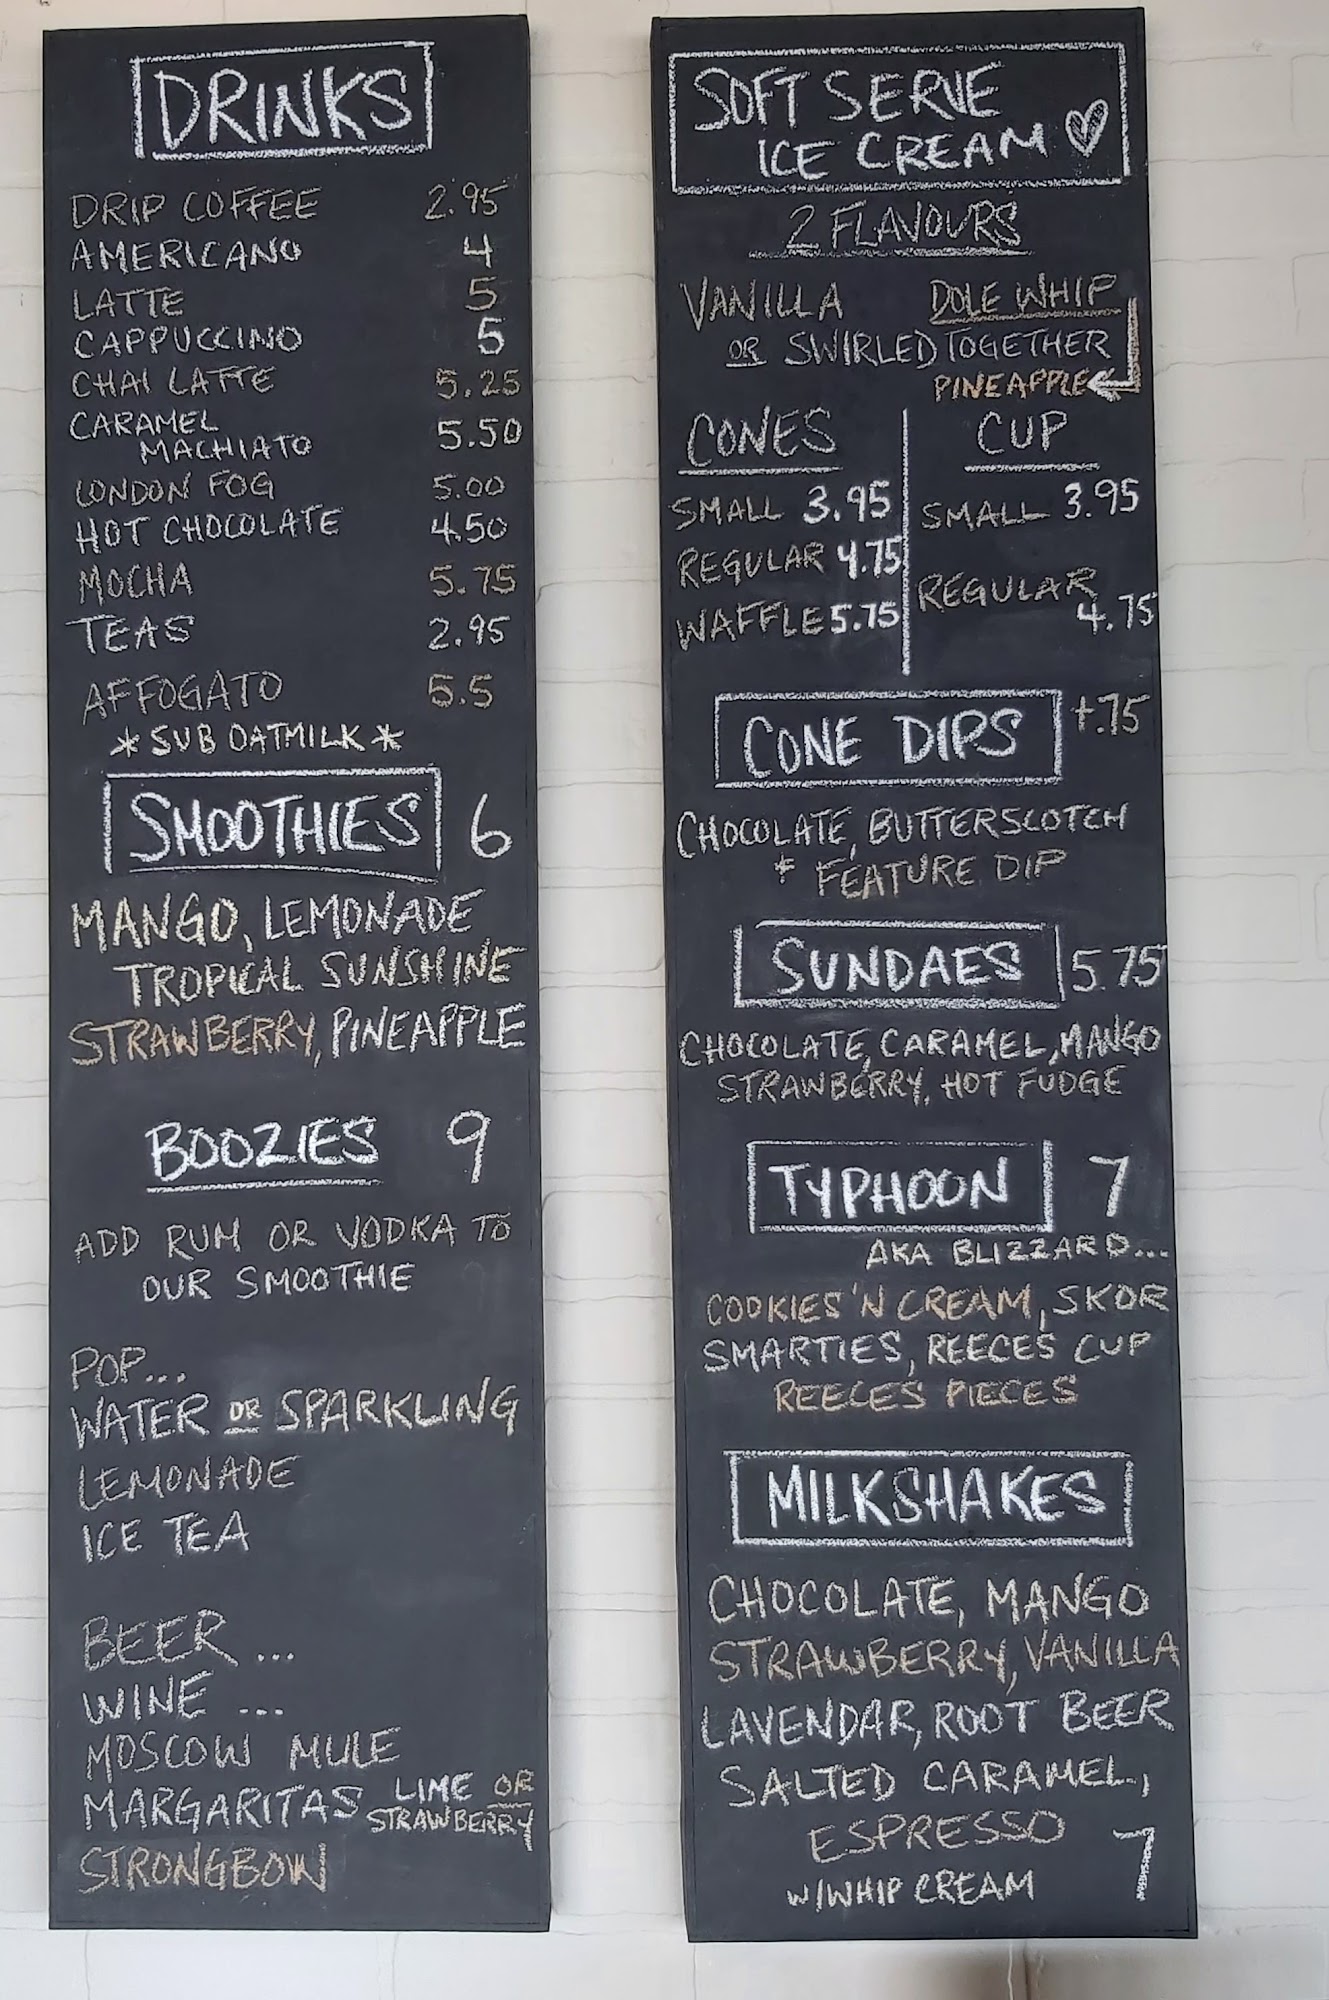 DRINKS
DRIP COFFEE 2.95
AMERICANO 4
LATTE 5
CAPPUCCINO 5
CHAI LATTE 5.25
CARAMEL
MACHIATO 5.50
LONDON FOG 5.00
HOT CHOCOLATE 4.50
MOCHA 5.75
TEAS 2.95
AFFOGATO 5.5
*SUB OATMILK*
SMOOTHIES 6
MANGO, LEMONADE
TROPICAL SUNSHINE
STRAWBERRY, PINEAPPLE
BOOZIES 9
ADD RUM OR VODKA TO
OUR SMOOTHIE
POP...
WATER OR SPARKLING
LEMONADE
ICE TEA
BEER ...
WINE ...
MOSCOW MULE
MARGARITAS LIME OR
STRAWBERRY
STRONGBOW
SOFT SERVE
ICE CREAM ♡
2 FLAVOURS
VANILLA DOLE WHIP
OR SWIRLED TOGETHER
PINEAPPLE←
CONES CUP
SMALL 3.95 SMALL 3.95
REGULAR 4.75 REGULAR
WAFFLE 5.75 4.75
CONE DIPS +.75
CHOCOLATE, BUTTERSCOTCH
+ FEATURE DIP
SUNDAES 5.75
CHOCOLATE, CARAMEL, MANGO
STRAWBERRY, HOT FUDGE
TYPHOON 7
AKA BLIZZARD...
COOKIES 'N CREAM, SKOR
SMARTIES, REECES CUP
REECES PIECES
MILKSHAKES
CHOCOLATE, MANGO
STRAWBERRY, VANILLA
LAVENDAR, ROOT BEER
SALTED CARAMEL,
ESPRESSO
W/WHIP CREAM 7